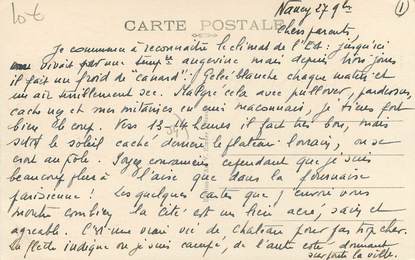 10€
CARTE POSTALE
Nancy 27 9bre
1
Chers parents
Je commence à reconnaître le climat de l'Est : jusqu'ici
vivait par une temp. angevine mais depuis trois jours
il fait un froid de "canard". Gelée blanche chaque matin et
un air terriblement sec. Malgré cela avec pullover, pardessus,
cache nez et mes mitaines en cuir maconnais, je tiens fort
bien le coup. Vers 13-14 heures il fait très bon, mais
sitôt le soleil caché derrière le plateau lorrain, on se
croit au pôle. Soyez convaincus cependant que je suis
beaucoup plus à l'aise que dans la fournaise
parisienne ! Les quelques cartes que j'envoie vous
montre combien la Cité est un lieu aéré, sain et
agréable. C'est une vraie vie de chateau pour pas trop cher.
La flèche indique où je suis campé, de l'autre côté donnant
sur toute la ville.